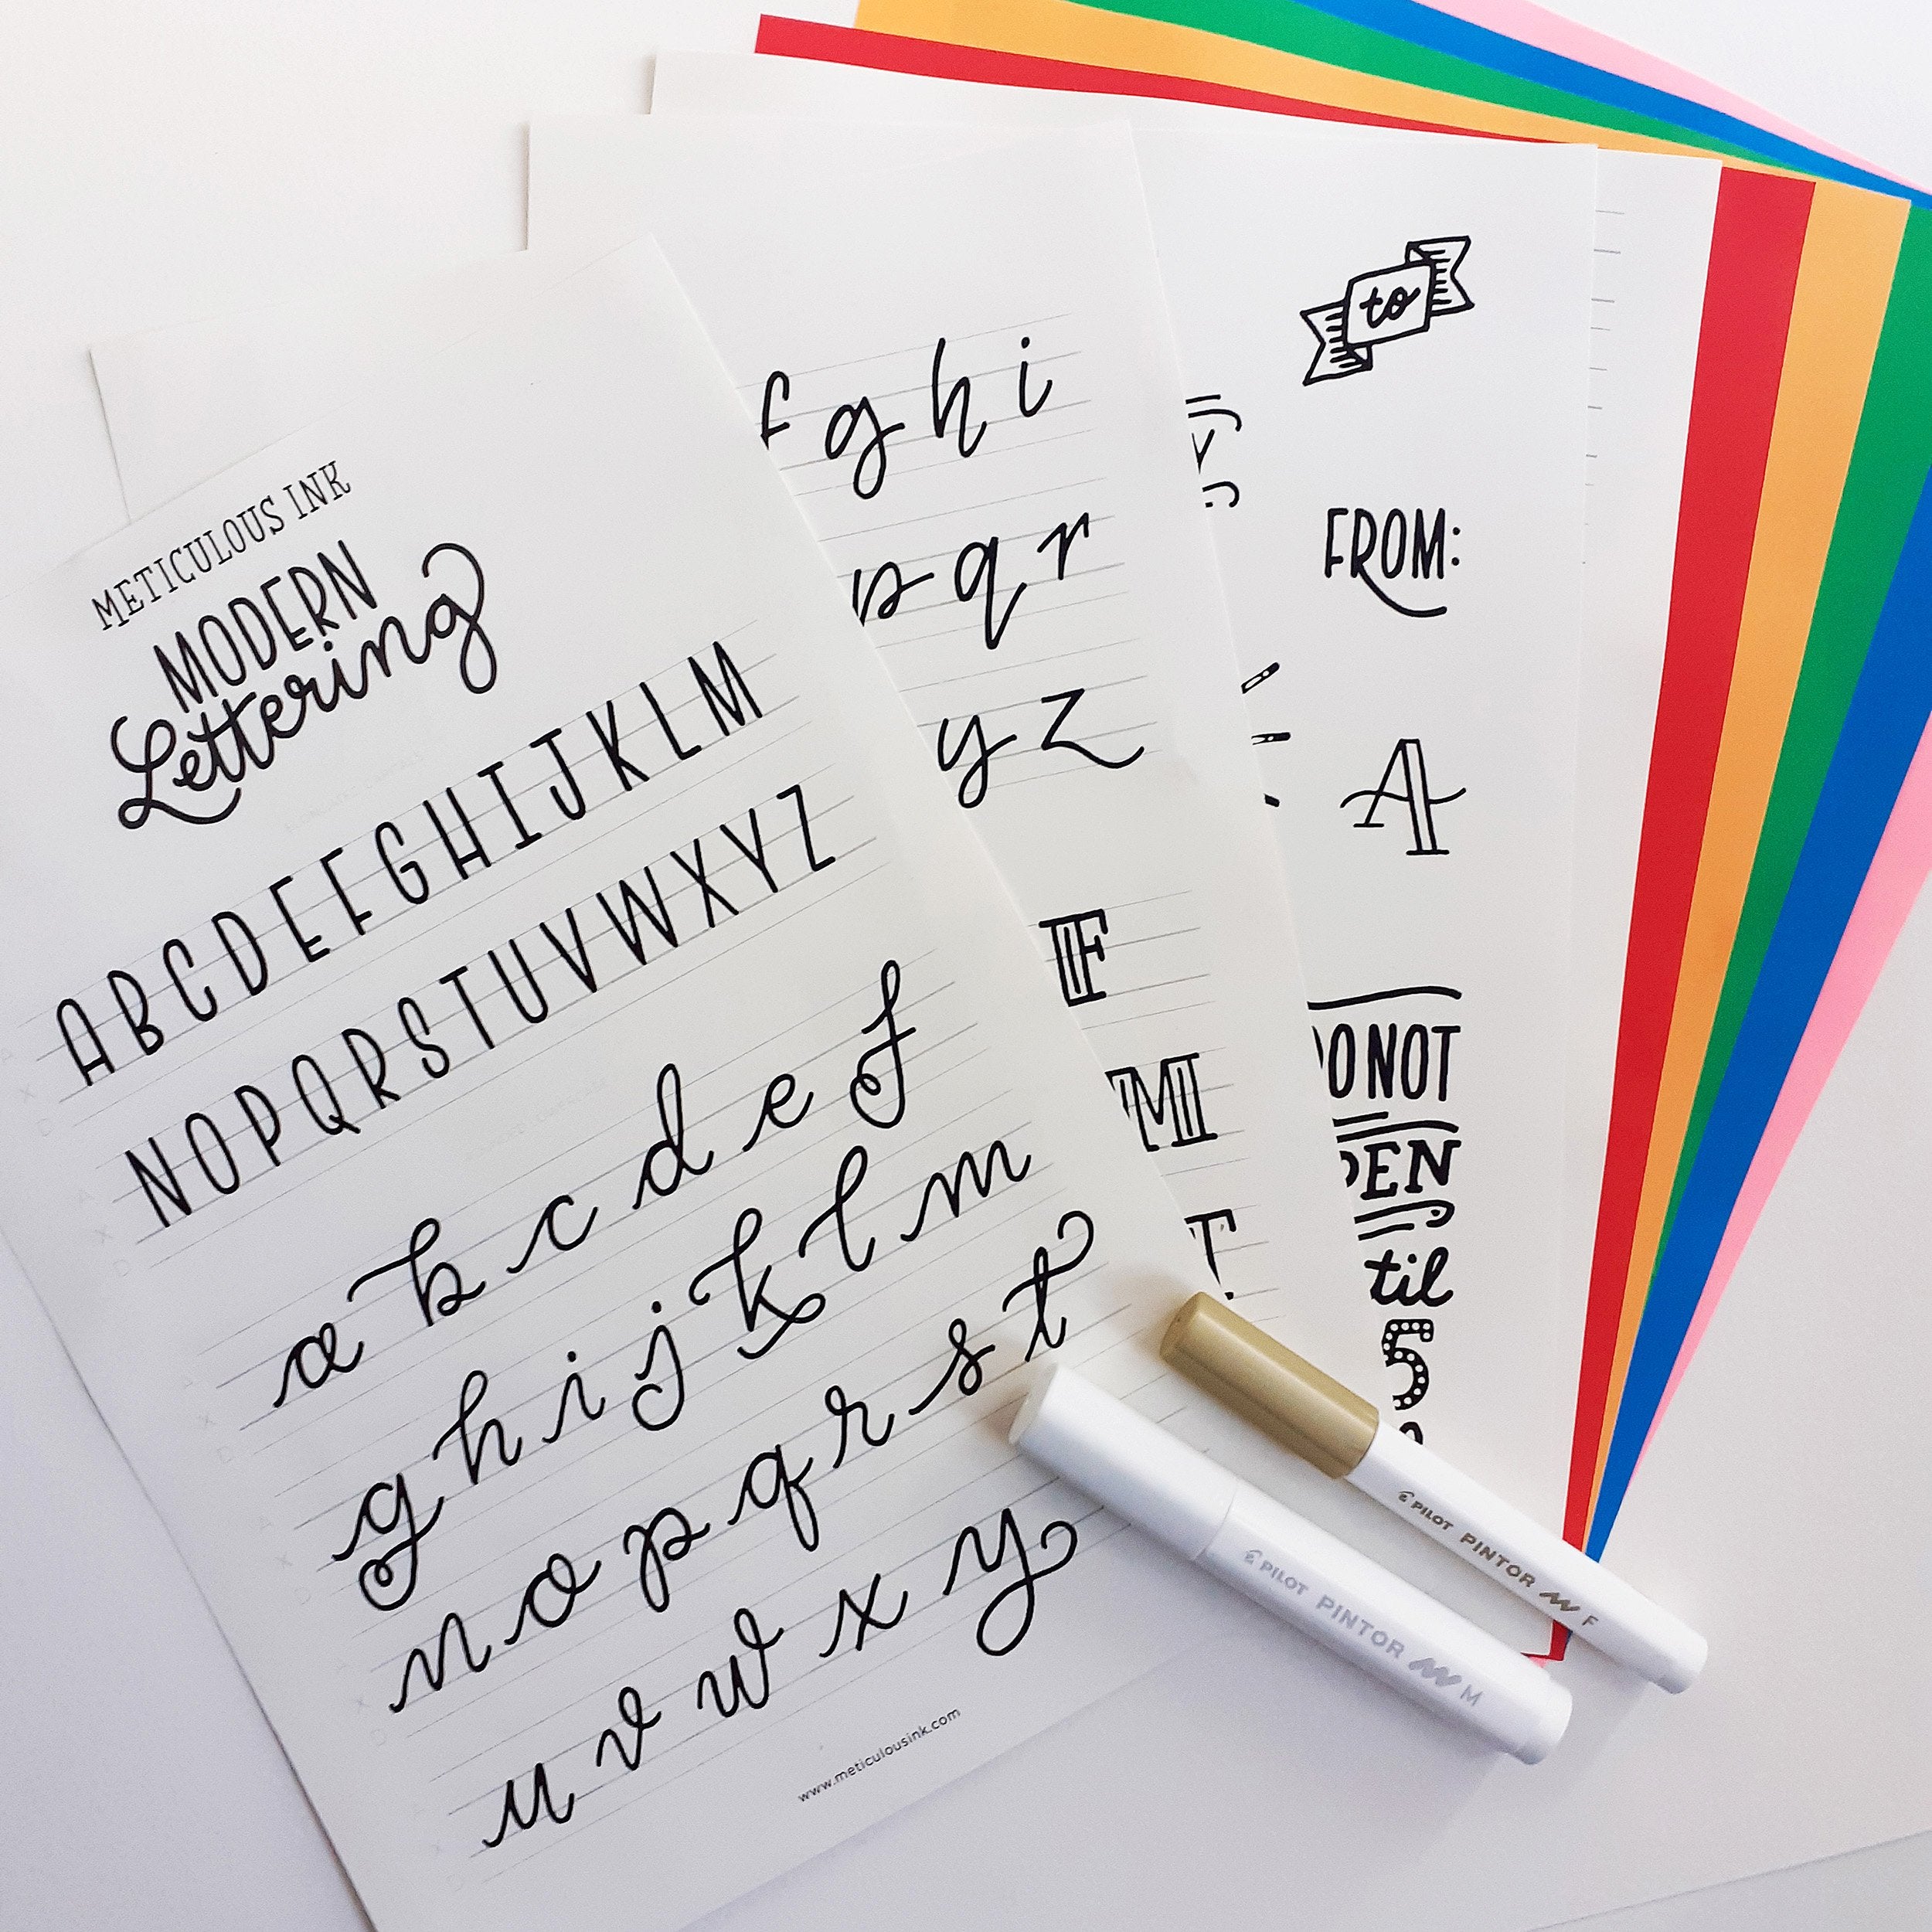 METICULOUS INK
MODERN
Lettering
ABCDEFGHIJKLM
NOPQRSTUVWXYZ
a b c d e f
g h i j k l m
n o p q r s t
u v w x y
www.meticulousink.com
f g h i
p q r
y z
F
M
T
to
FROM:
A
O NOT
EN
til
5
PILOT PINTOR M
PILOT PINTOR F